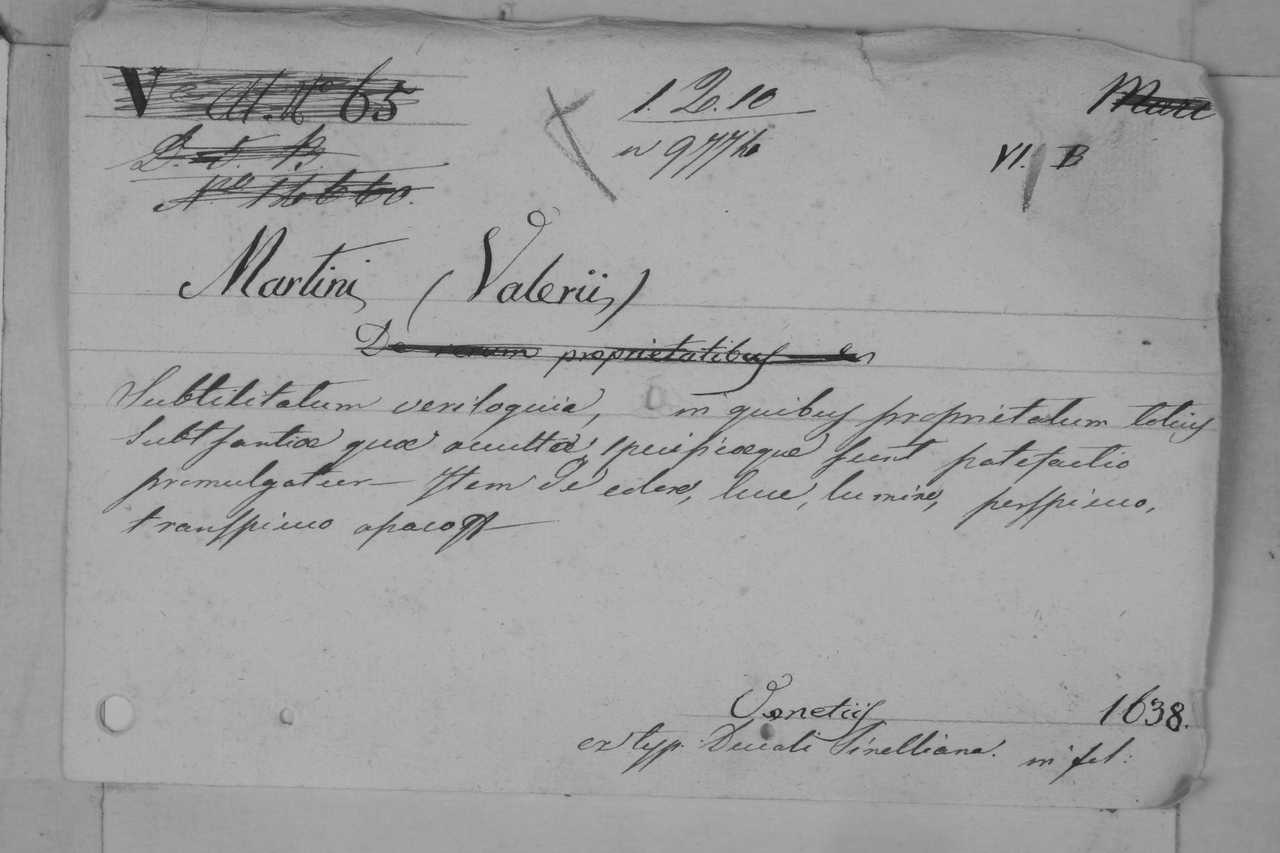 65
1. D. 10
VI. B
Martini, (Valerii,)
De rerum proprietatibus
Subtilitatum veriloquia, in quibus proprietatum totius
Subtsantiæ quæ occultæ, specificæque sunt patefactio
promulgatur — Item de colore, luce, lumine, perspicuo,
transpicuo opaco
Venetiis 1638.
ex typ. Ducali Pinelliana. in fol: